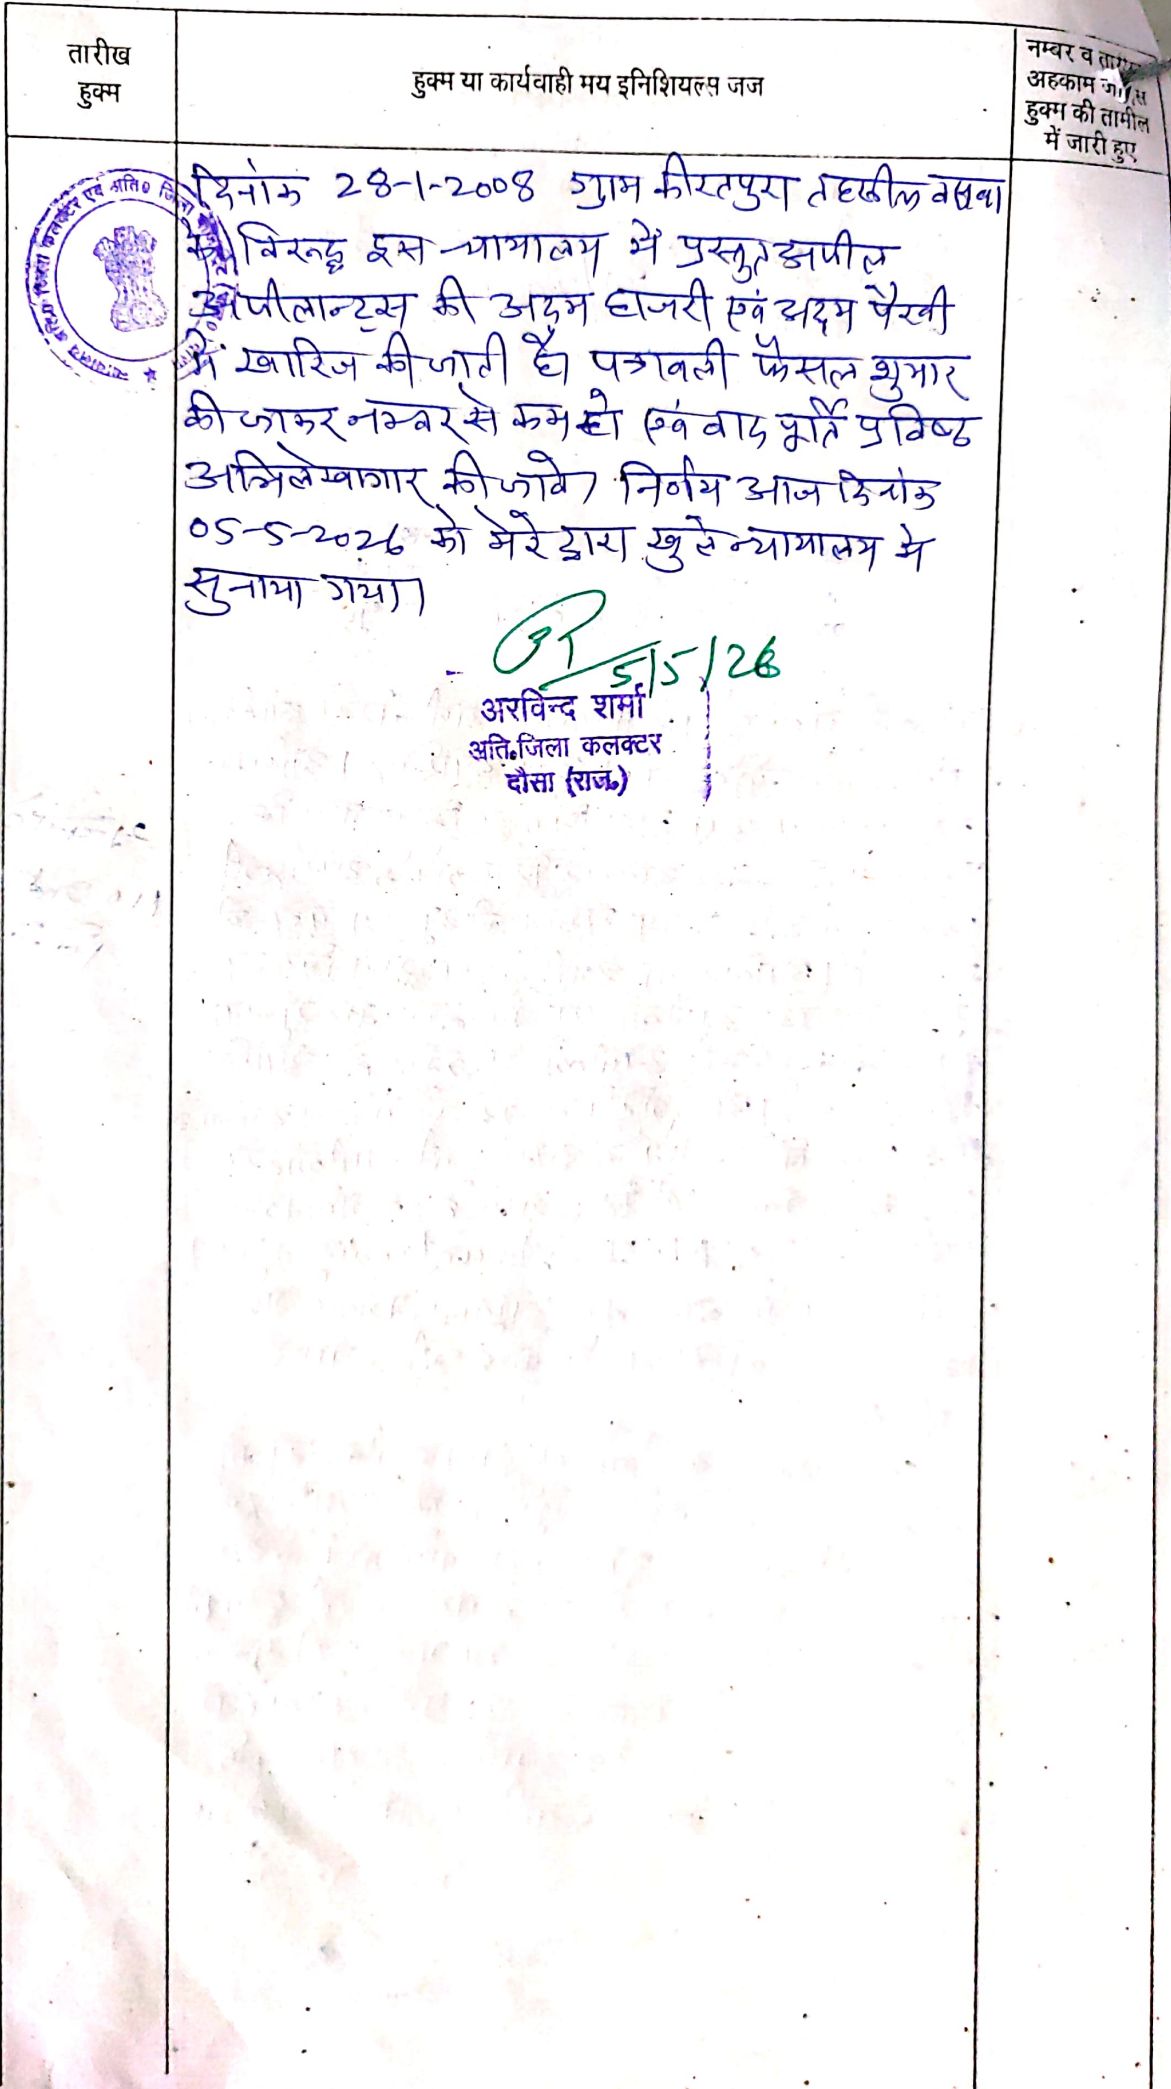 तारीख
हुक्म
हुक्म या कार्यवाही मय इनिशियल्स जज
नम्बर व तारीख
अहकाम जो इस
हुक्म की तामील
में जारी हुए
दिनांक 28-1-2008 ग्राम कीरतपुरा तहसील बसवा
के विरूद्ध इस न्यायालय में प्रस्तुत अपील
अपीलान्ट्स की अदम हाजरी एवं अदम पैरवी
में खारिज की जाती है। पत्रावली फैसल शुमार
की जाकर नम्बर से कम हो एवं बाद पूर्ति प्रविष्ठ
अभिलेखागार की जावे। निर्णय आज दिनांक
05-5-2026 को मेरे द्वारा खुले न्यायालय मे
सुनाया गया।
5/5/26
अरविन्द शर्मा
अति.जिला कलक्टर
दौसा (राज.)